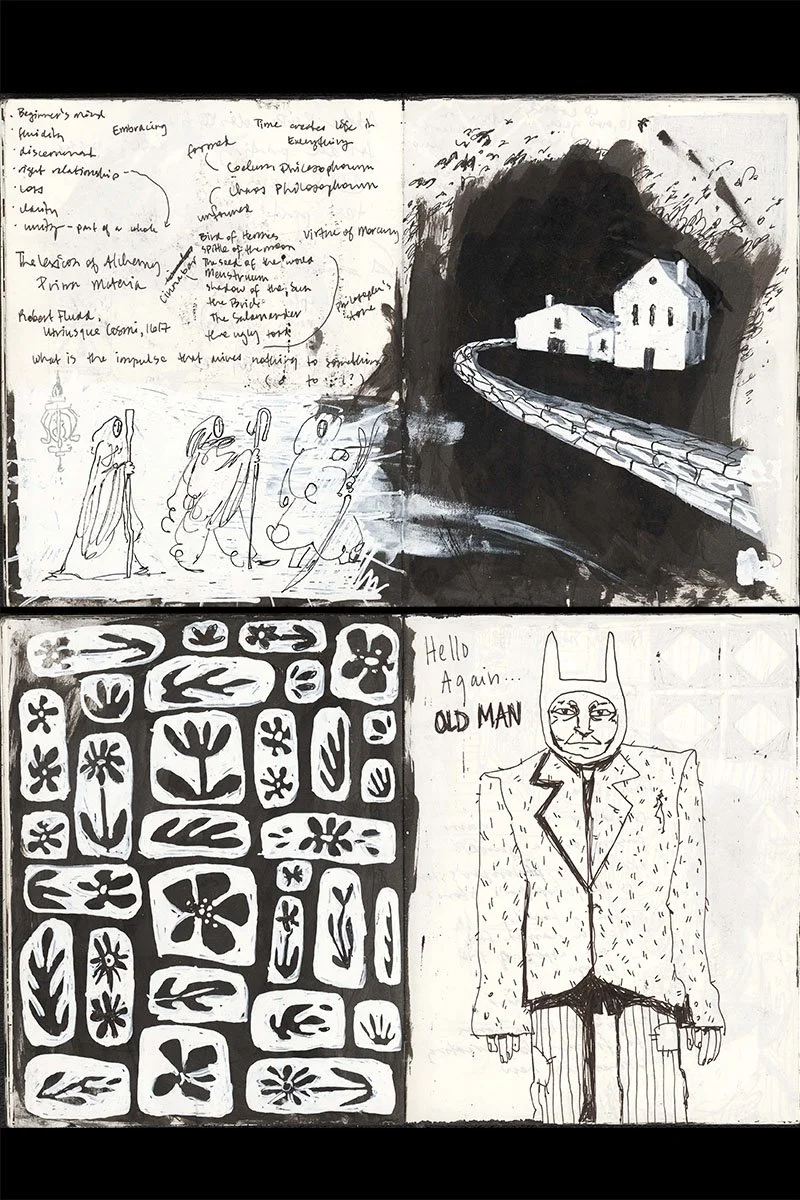 . Beginner's mind
· fluidity
· discernment
· right relationship
· Loss
· clarity
· unity - part of a whole
Embracing
Time creates life in
Everything
formed
Coelum Philosophorum
Chaos Philosophorum
unformed
The Lexicon of Alchemy
Prima Materia
Robert Fludd,
Utriusque Cosmi, 1617
Cinnabar
Bird of Hermes
Spittle of the moon
The seed of the world
Menstruum
Shadow of the Sun
the Bride
The Salamander
the ugly toad
Virtue of Mercury
Philosopher's
Stone
What is the impulse that drives nothing to something
( to !?)
Hello
Again...
OLD MAN